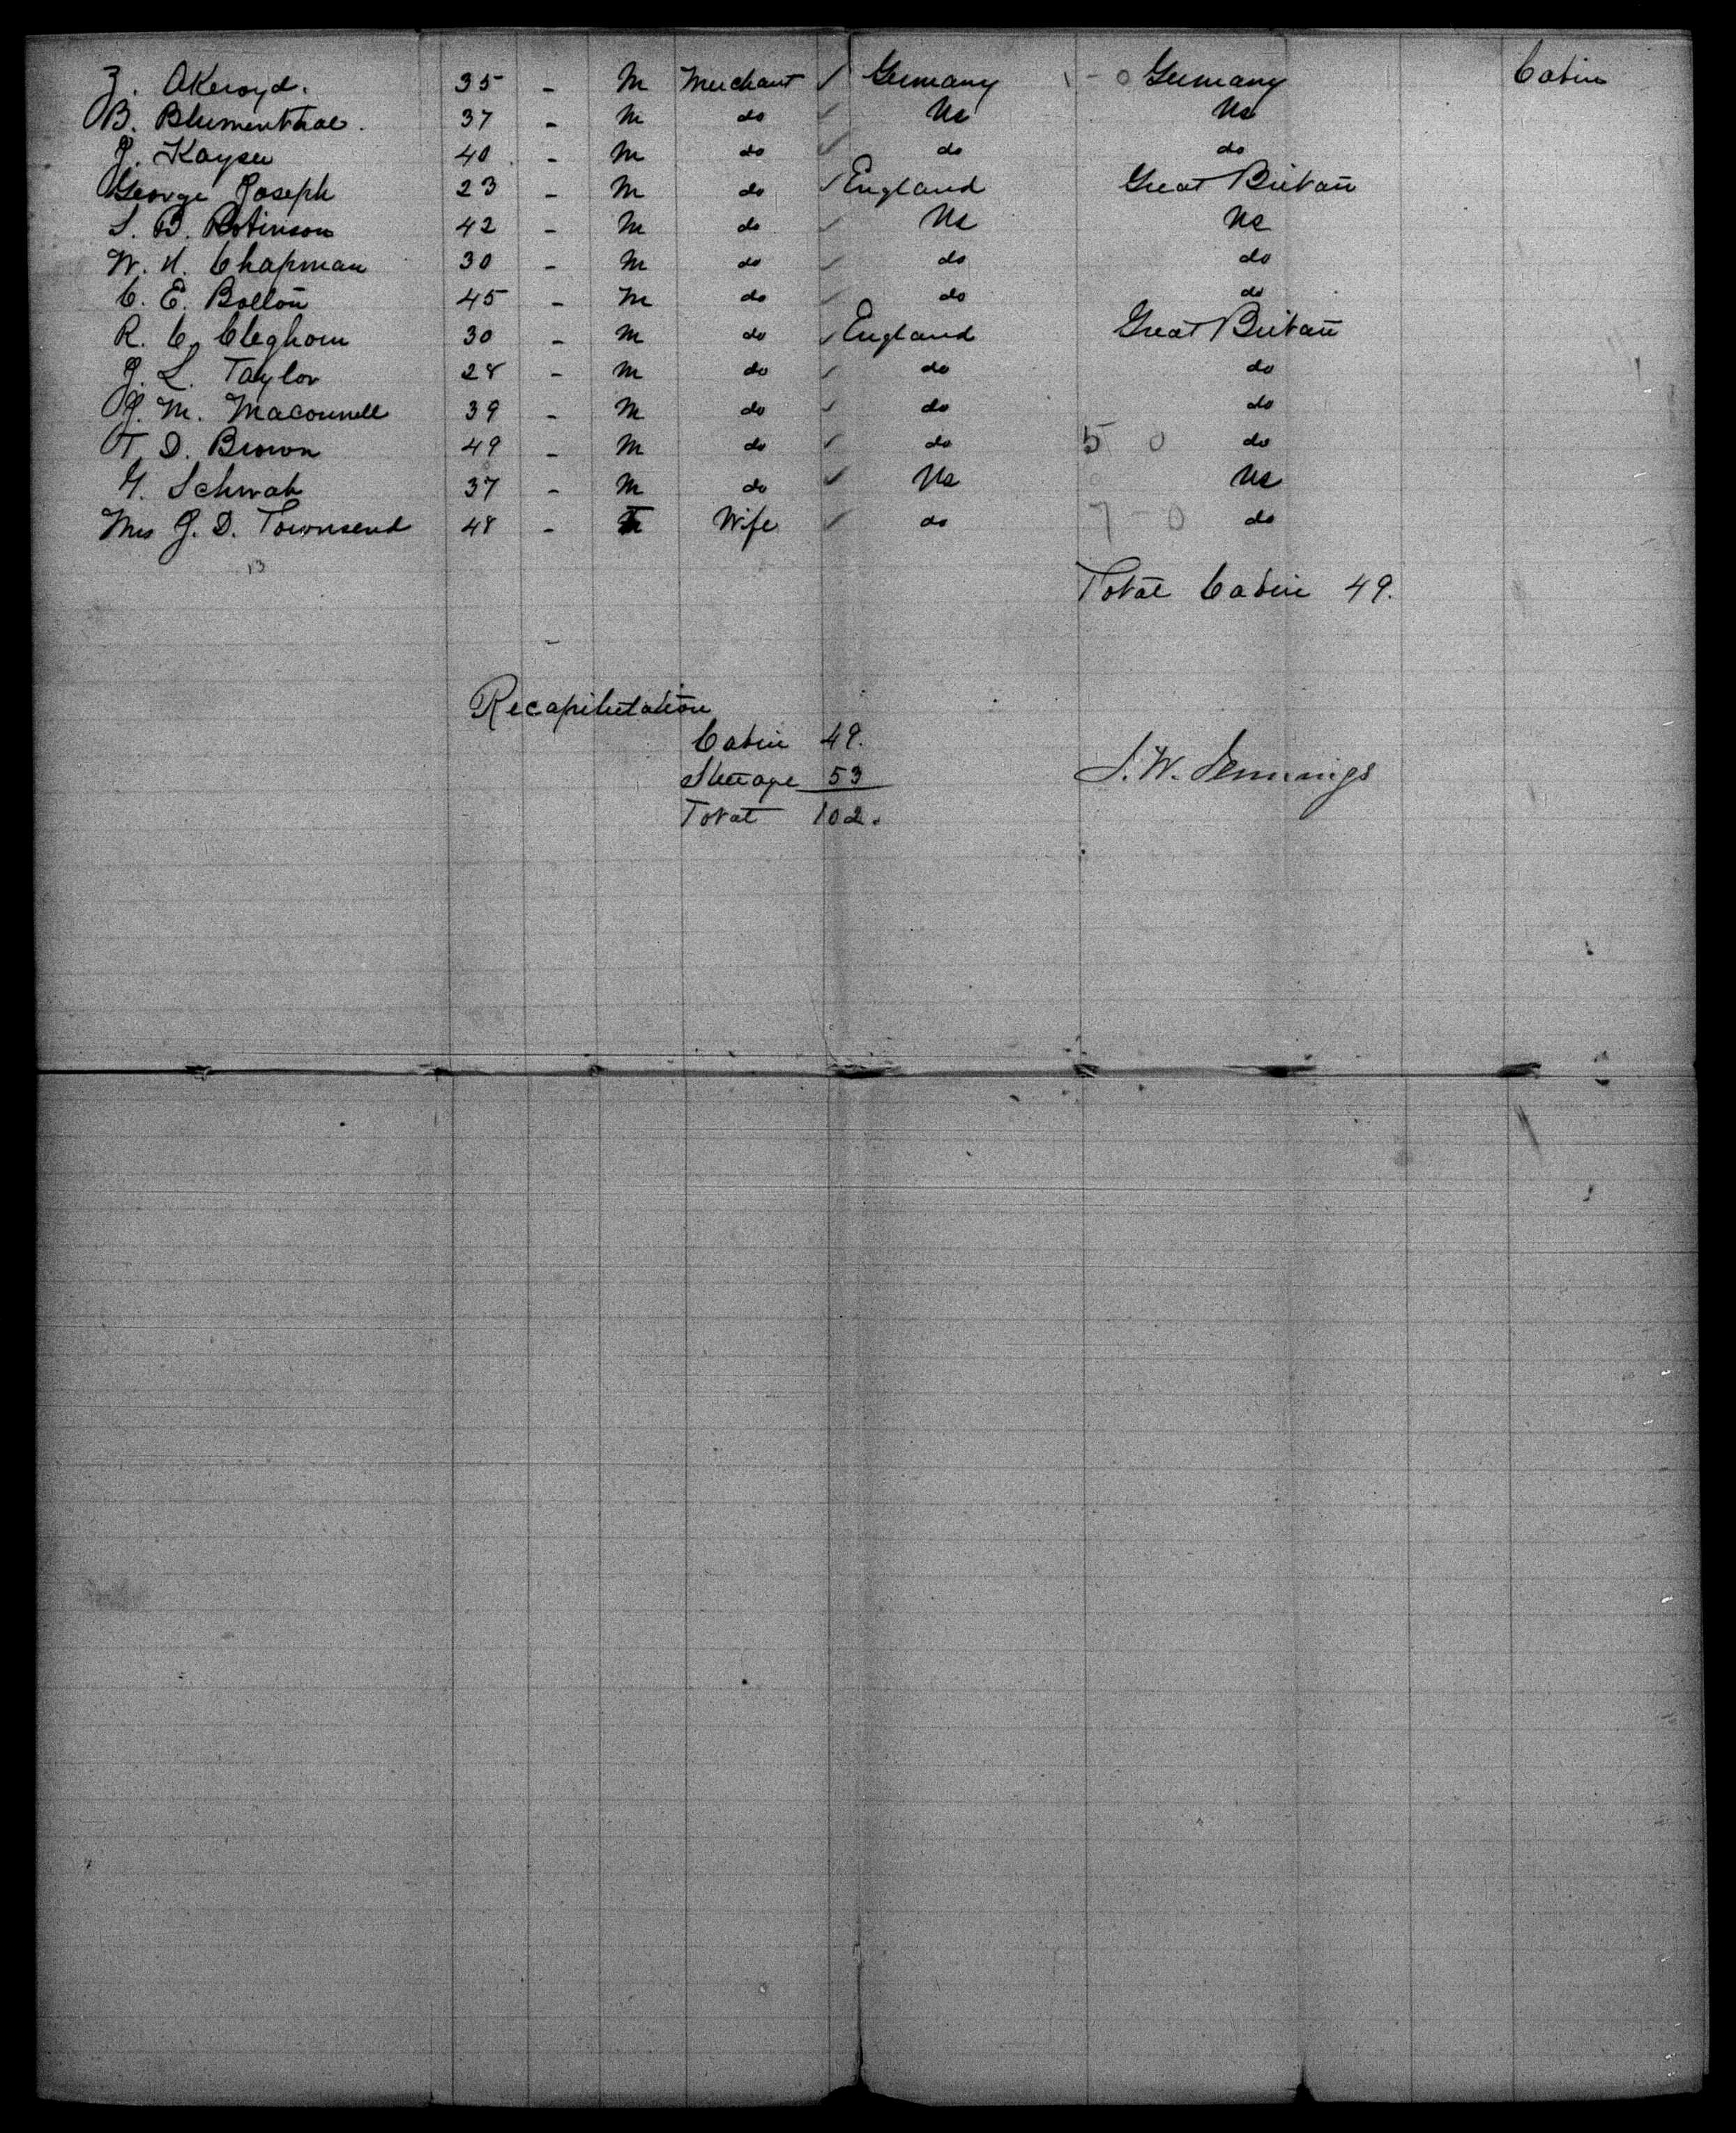 Z. Akeroyd. 35 - M Merchant ✓ Germany 1 - 0 Germany Cabin
B. Blumenthal. 37 - M do ✓ Us Us
J. Kayser 40. - M do ✓ do do
George Joseph 23 - M do ✓ England Great Britain
S. B. Robinson 42 - M do ✓ Us Us
W. H. Chapman 30 - M do ✓ do do
C. E. Bolton 45 - M do ✓ do do
R. C. Cleghorn 30 - M do ✓ England Great Britain
J. L. Taylor 28 - M do ✓ do do
J. M. Maconnell 39 - M do ✓ do do
T. D. Brown 49 - M do ✓ do 5 0 do
G. Schwab 37 - M do ✓ Us Us
Mrs J. D. Townsend 48 - Wife ✓ do 7 - 0 do
13
Total Cabin 49.
Recapitulation
Cabin 49.
Steerage 53
Total 102.
S. W. Jennings